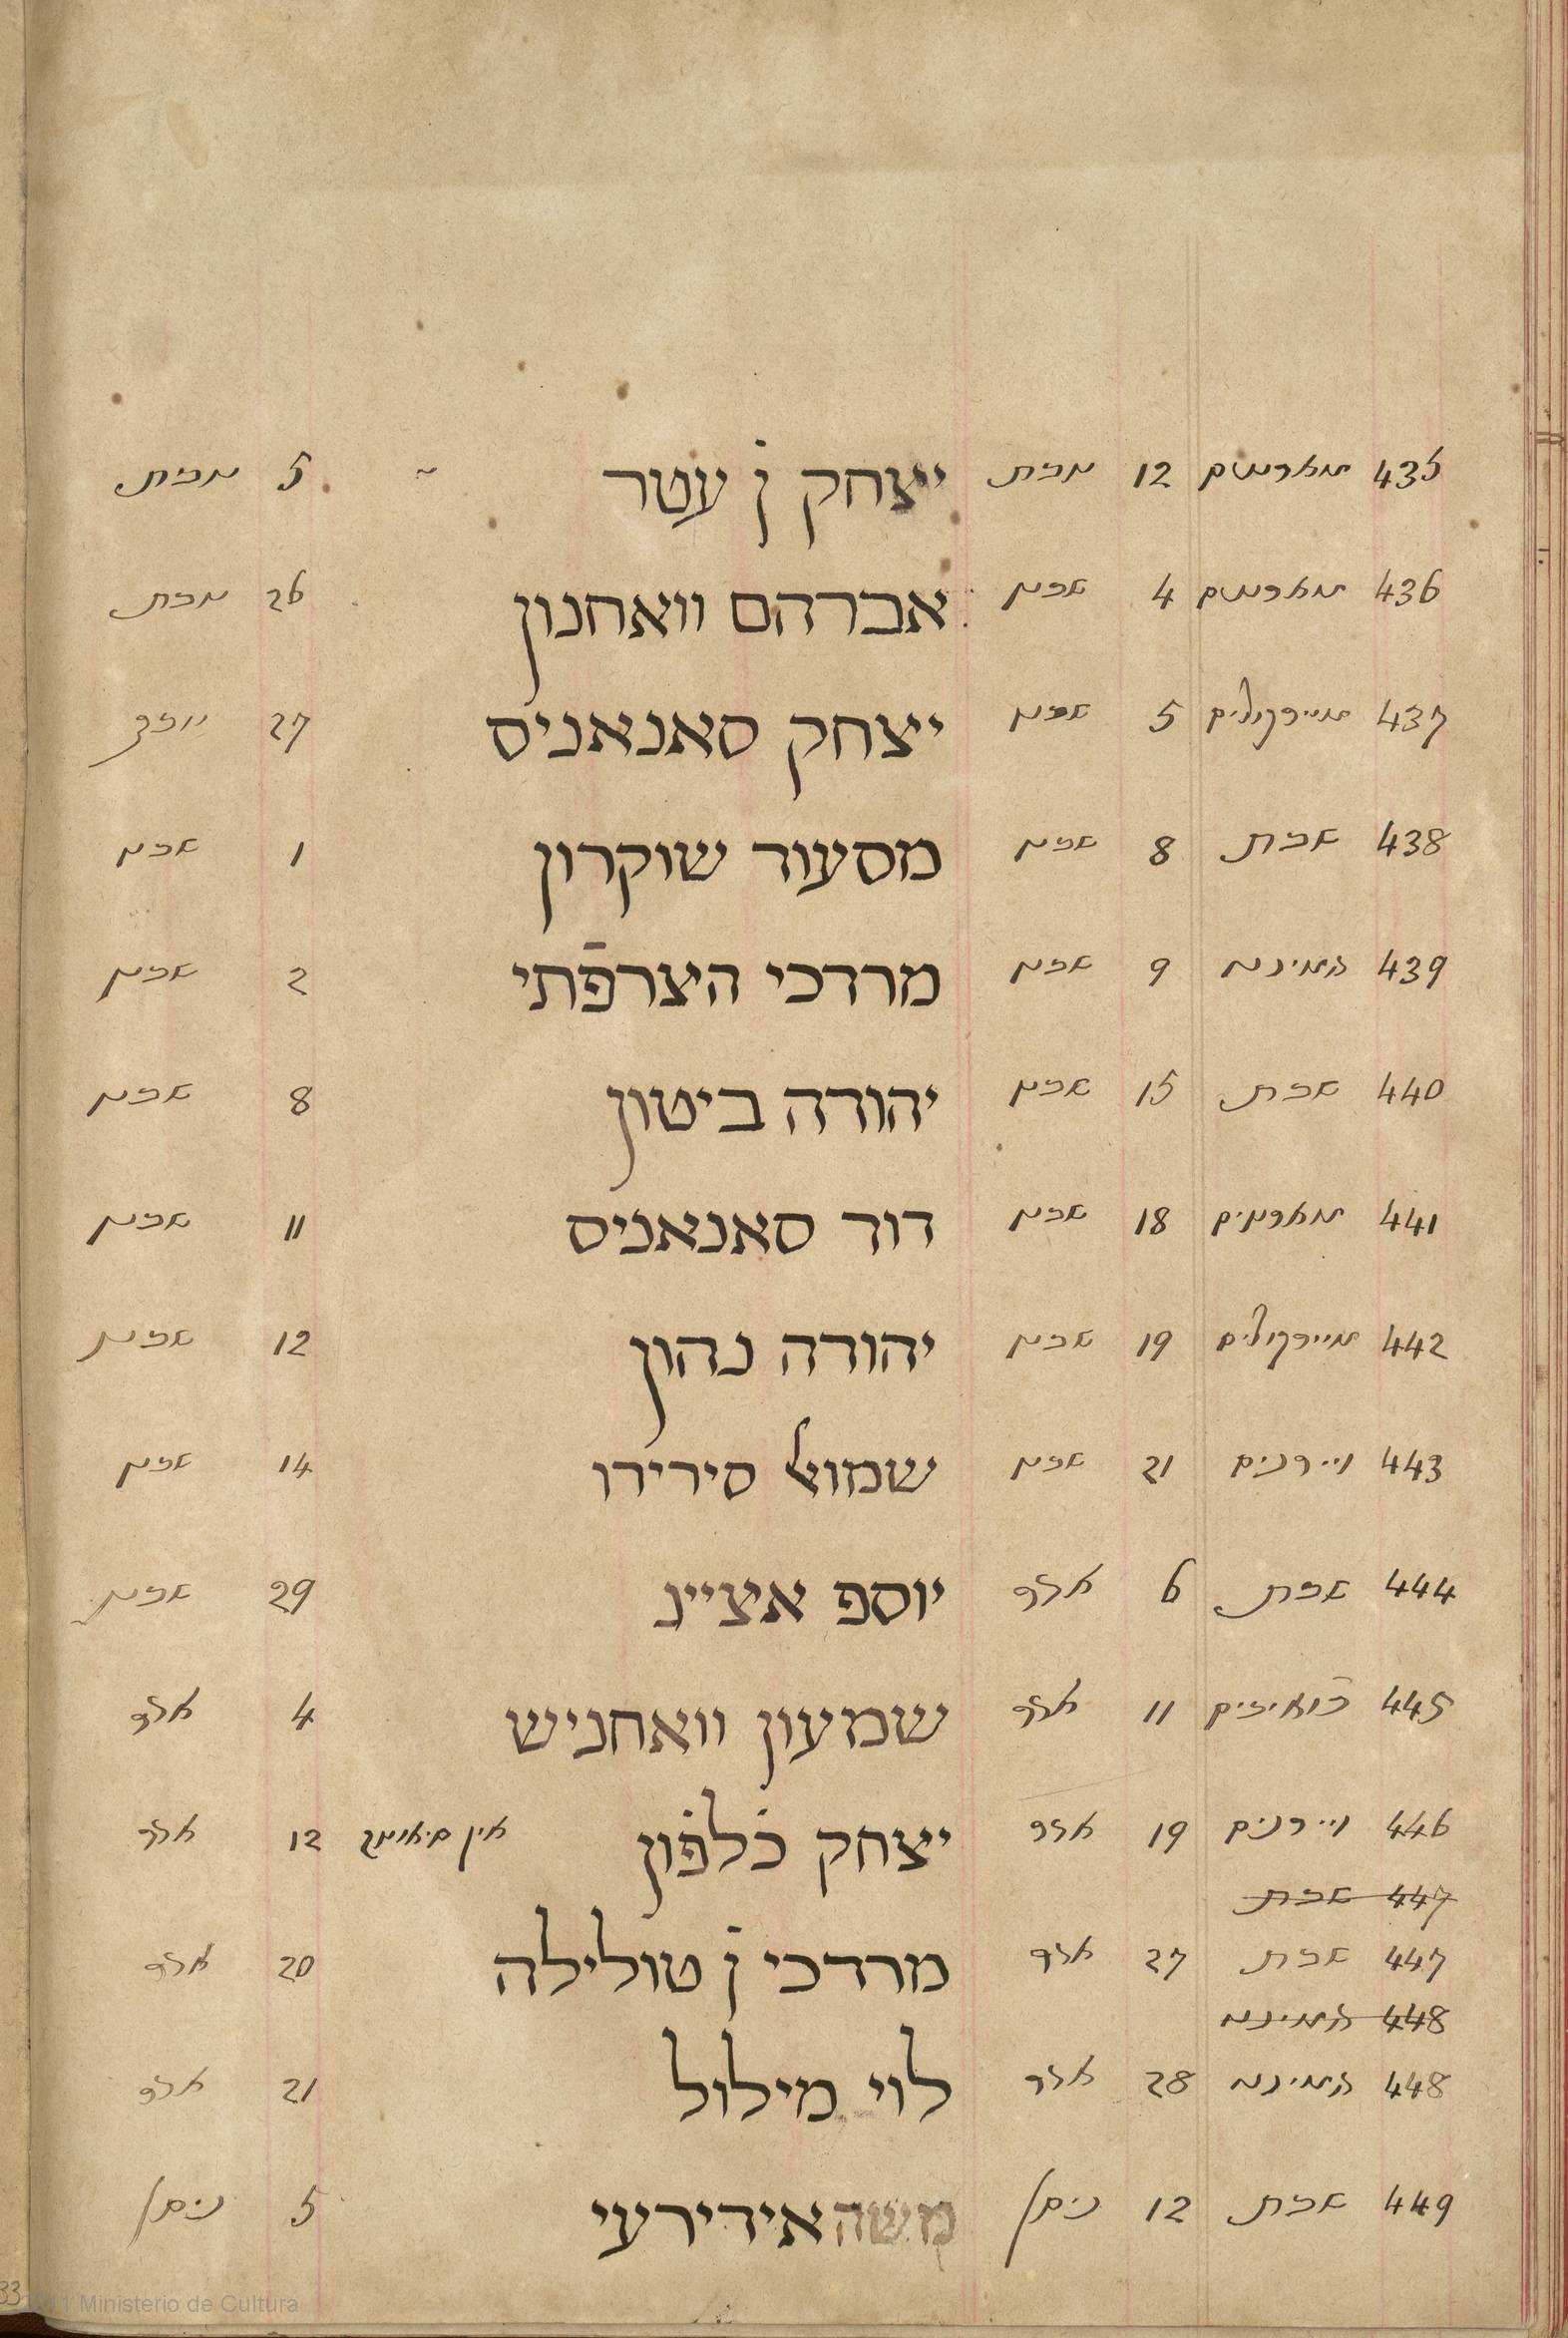 435 מארטיס 12 טבת יצחק ן׳ עטר 5 טבת
436 מארטיס 4 שבט אברהם וואחנון 26 טבת
437 מיירקוליס 5 שבט יצחק סאנאניס 27
438 שבת 8 שבט מסעוד שוקרון 1 שבט
439 9 שבט מרדכי הצרפֿתי 2 שבט
440 שבת 15 שבט יהודה ביטון 8 שבט
441 מארטיס 18 שבט דוד סאנאניס 11 שבט
442 מיירקוליס 19 שבט יהודה נהון 12 שבט
443 ויירניס 21 שבט שמואל סירירו 14 שבט
444 שבת 6 אדר יוסף אציינ 29 שבט
445 גׄואיביס 11 אדר שמעון וואחניש 4 אדר
446 ויירניס 19 אדר יצחק כׄלפׄון אין סיאוטה 12 אדר
447 שבת
447 שבת 27 אדר מרדכי ן׳ טולילה 20 אדר
448
448 28 אדר לוי מילול 21 אדר
449 שבת 12 ניסן משה אידירעי 5 ניסן
33 Ministerio de Cultura